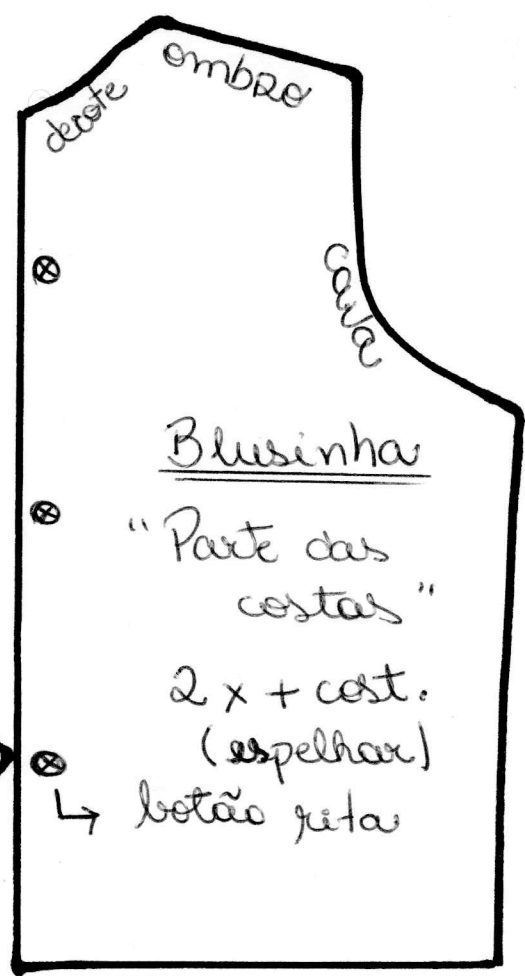 ombro
decote
cava
Blusinha
"Parte das
costas"
2 x + cost.
(espelhar)
↳ botão rita